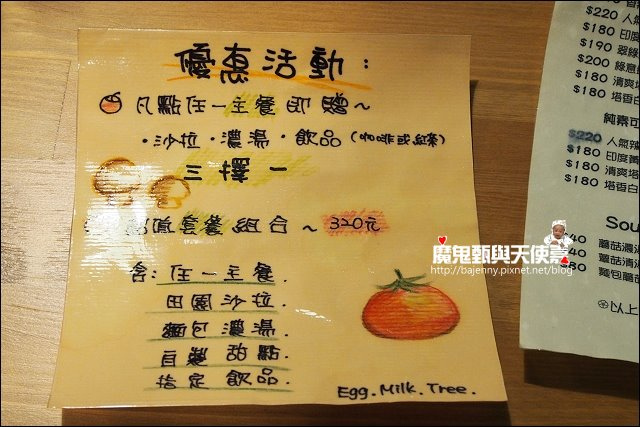 優惠活動：
凡點任一主餐即贈～
・沙拉・濃湯・飲品（咖啡或紅茶）
三擇一
套餐組合～320元
含：任一主餐．
田園沙拉．
麵包濃湯．
自製甜點．
指定飲品．
Egg. Milk. Tree.
$220 人氣
$180 印度
$190 翠綠
$200 綠意
$180 清爽
$180 塔香
純素可
$220 人氣辣
$180 印度
$180 清爽塔
$180 塔香白
Sou
40 蘑菇濃湯
40
40 麵包蘑菇
以上
魔鬼甄與天使嘉
http://bajenny.pixnet.net/blog